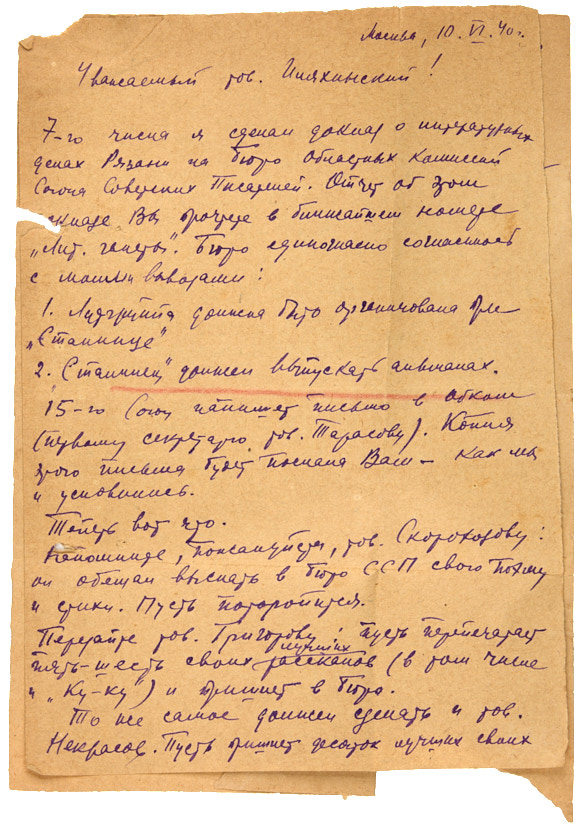 Москва, 10. VI. 40 г.
Уважаемый тов. !
7-го числа я сделал доклад о литературных
делах Рязани на бюро Областных Комиссий
Союза Советских Писателей. Отчет об этом
докладе Вы прочтете в ближайшем номере
„Лит. газеты". Бюро единогласно согласилось
с моими выводами:
1. Литгруппа должна быть организована при
„Сталинце"
2. „Сталинец" должен выпускать альманах.
15-го Союз напишет письмо в обком
(первому секретарю тов. Тарасову). Копия
этого письма будет послана Вам – как мы
и условились.
Теперь вот что.
Напомните, пожалуйста, тов. Скороходову:
он обещал выслать в бюро ССП свою поэму
и стихи. Пусть поторопится.
Передайте тов. Григорову: пусть перепечатает
пять-шесть своих лучших рассказов (в том числе
и „Ку-ку") и пришлет в бюро.
То же самое должен сделать и тов.
Некрасов. Пусть пришлет десяток лучших своих